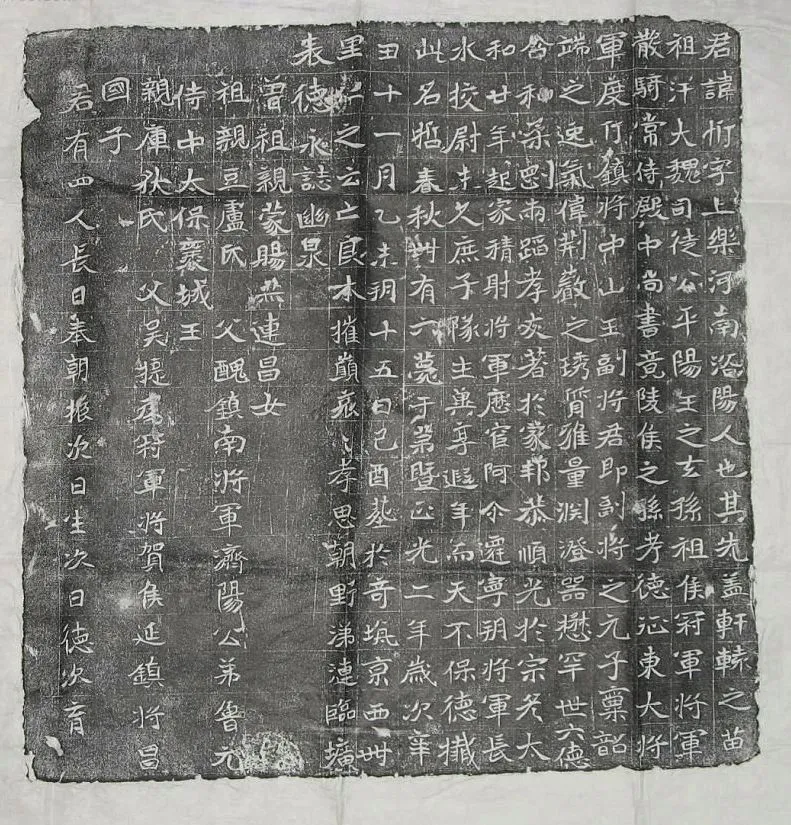 君諱忻字上樂河南洛陽人也其先盖軒轅之苗
祖汗大魏司徒公平陽王之玄孫祖侯冠軍將軍
散騎常侍殿中尚書竟陵侯之孫考德征東大將
軍度斤鎮將中山王副將君即副將之元子稟韶
端之逸氣偉荊巖之琇質雅量淵澄器懋罕世六德
含和柔剛兩蹈孝友著於家邦恭順光於宗大
和廿年起家積射將軍歷官阿令遷寧朔將軍長
水校尉久庶子隊主冀享遐年而天不保德攕
此名哲春秋卌有六薨于第暨正光二年歲次辛
丑十一月乙未朔十五日己酉塟於奇坑京西卅
里仁之云亡良木摧巔哀〻孝思朝野涕漣臨壙
表德永誌幽泉
曾祖親蒙賜連昌女
祖親豆盧氏 父醜鎮南將軍濟陽公弟魯元
侍中太保襄城王
親庫狄氏 父吴提爲冠軍將賀侯延鎮將昌
國子
君有四人長曰奉朝振次曰生次曰德次育